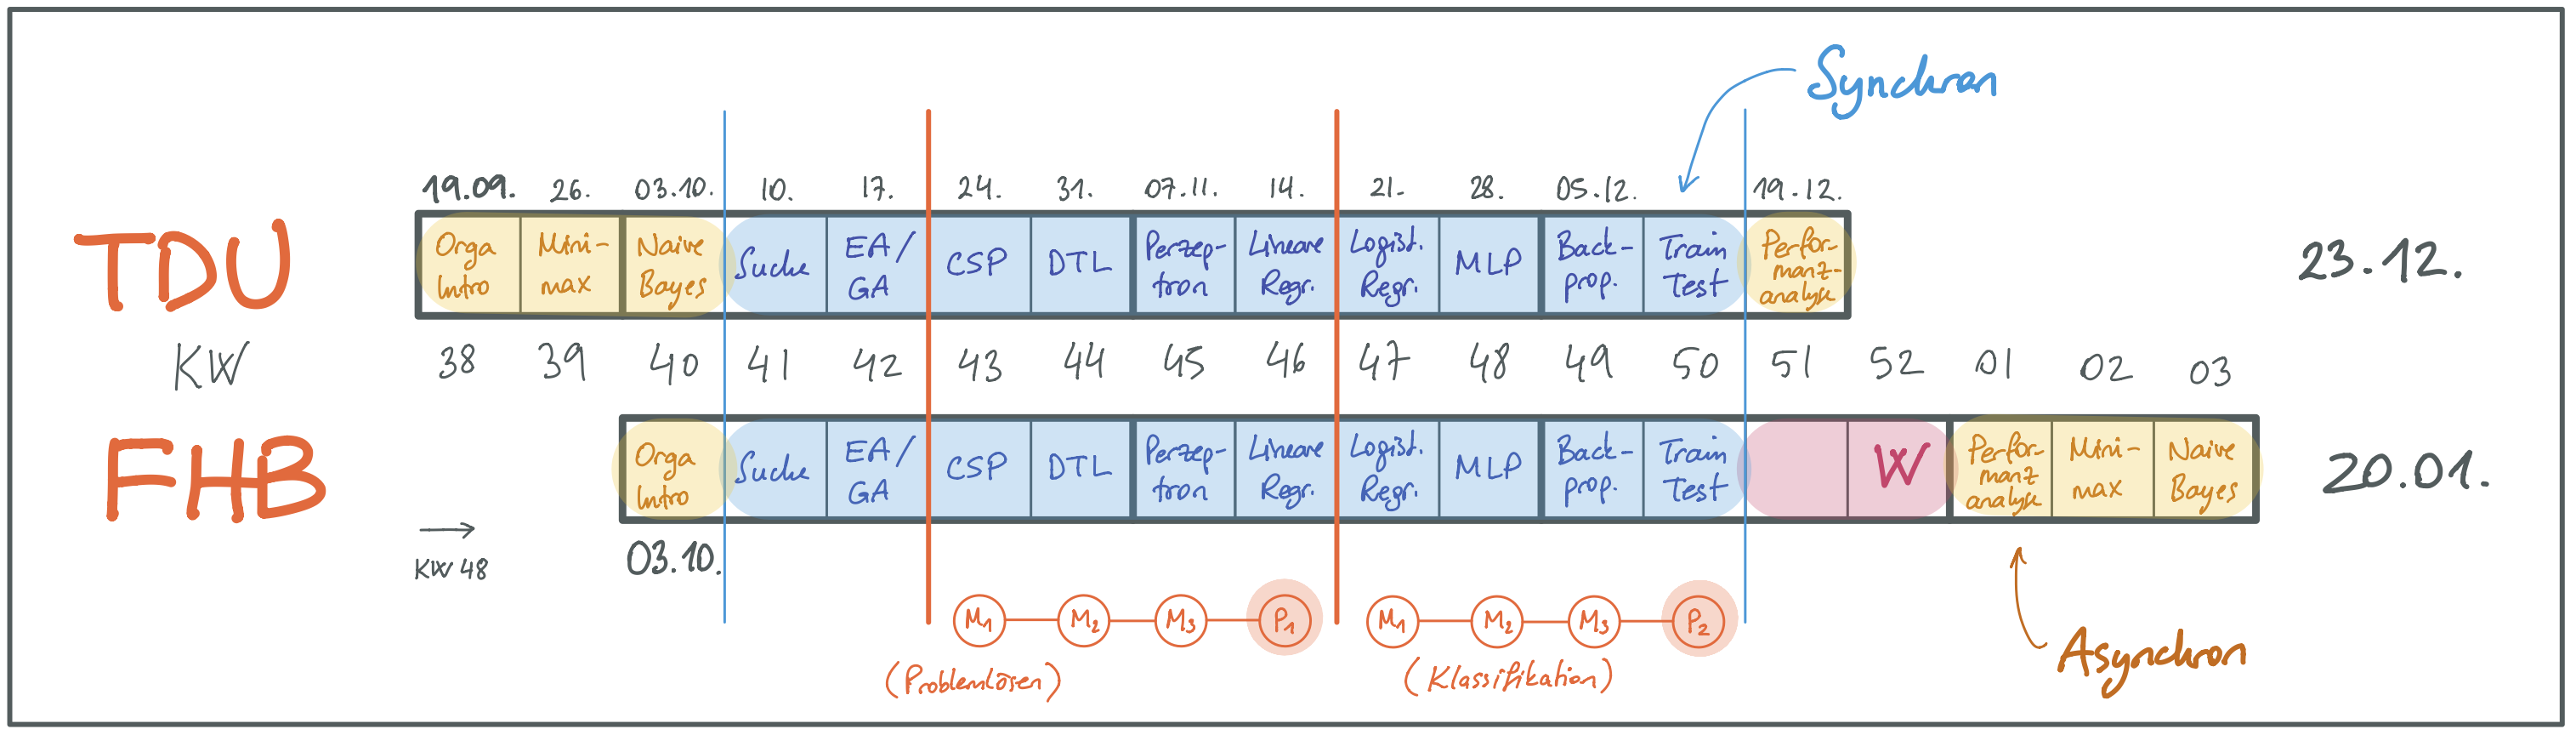 Synchron
19.09. 26. 03.10. 10. 17. 24. 31. 07.11. 14. 21. 28. 05.12. 19.12.
TDU
Orga
Intro
Mini-
max
Naive
Bayes
Suche
EA/
GA
CSP
DTL
Perzep-
tron
Lineare
Regr.
Logist.
Regr.
MLP
Back-
prop.
Train
Test
Perfor-
manz-
analyse
23.12.
KW 38 39 40 41 42 43 44 45 46 47 48 49 50 51 52 01 02 03
FHB
Orga
Intro
Suche
EA/
GA
CSP
DTL
Perzep-
tron
Lineare
Regr.
Logist.
Regr.
MLP
Back-
prop.
Train
Test
W
Perfor-
manz
analyse
Mini-
max
Naive
Bayes
20.01.
→
KW 48
03.10.
M1 M2 M3 P1 M1 M2 M3 P2
(Problemlösen) (Klassifikation)
Asynchron